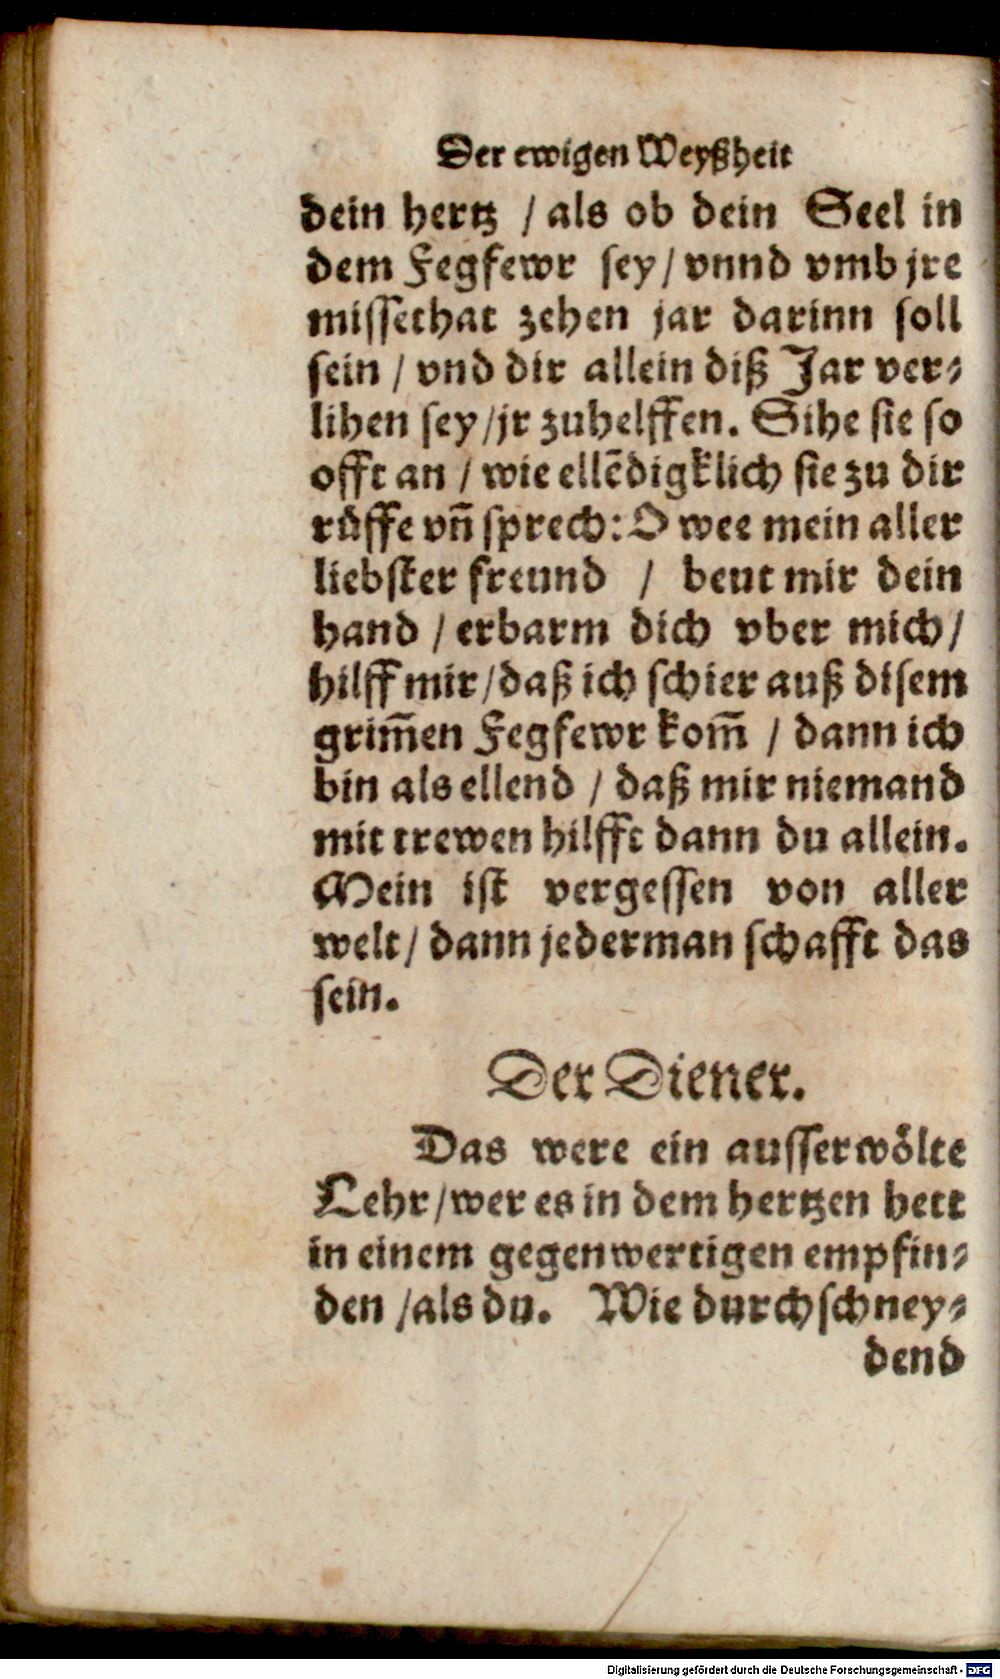 Der ewigen Weyßheit
dein hertz / als ob dein Seel in
dem Fegfewr sey / vnnd vmb jre
missethat zehen jar darinn soll
sein / vnd dir allein diß Jar ver⸗
lihen sey / jr zuhelffen. Sihe sie so
offt an / wie ellẽdigklich sie zu dir
rüffe vñ sprech: O wee mein aller
liebster freund / beut mir dein
hand / erbarm dich vber mich /
hilff mir / daß ich schier auß disem
grim̃en Fegfewr kom̃ / dann ich
bin als ellend / daß mir niemand
mit trewen hilfft dann du allein.
Mein ist vergessen von aller
welt / dann jederman schafft das
sein.
Der Diener.
Das were ein ausserwölte
Lehr / wer es in dem hertzen hett
in einem gegenwertigen empfin⸗
den / als du. Wie durchschney⸗
dend
Digitalisierung gefördert durch die Deutsche Forschungsgemeinschaft - DFG